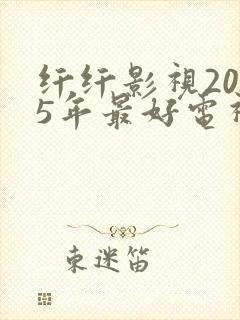 纤纤影視20
5年最好電視
束迷笛